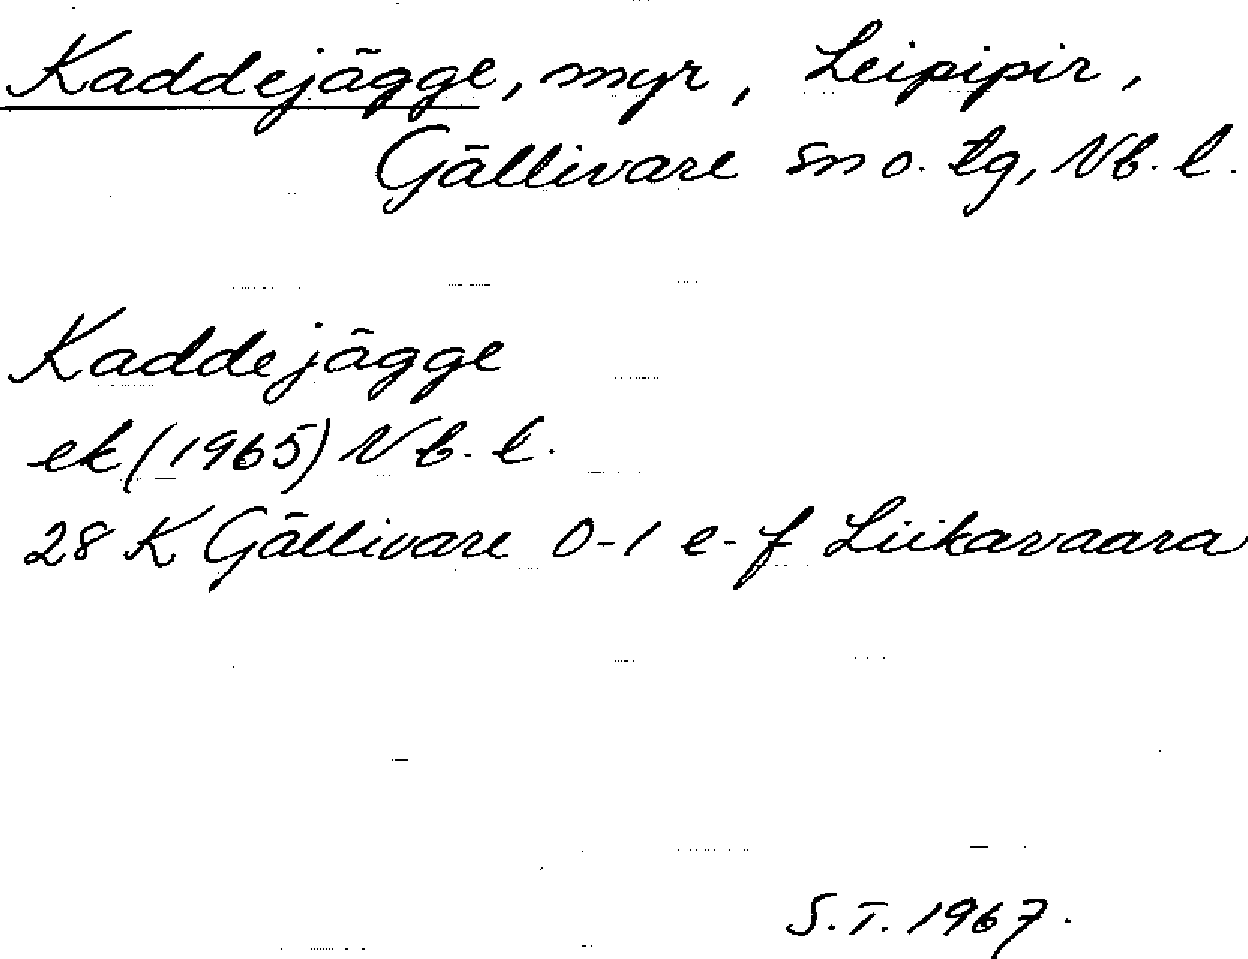 Kaddejägge, myr, Leipipir,
Gällivare sn o. tg, Nb. l.
Kaddejägge
ek (1965) Nb. l.
28 K Gällivare 0-1 e-f Liikavaara
S.T. 1967.